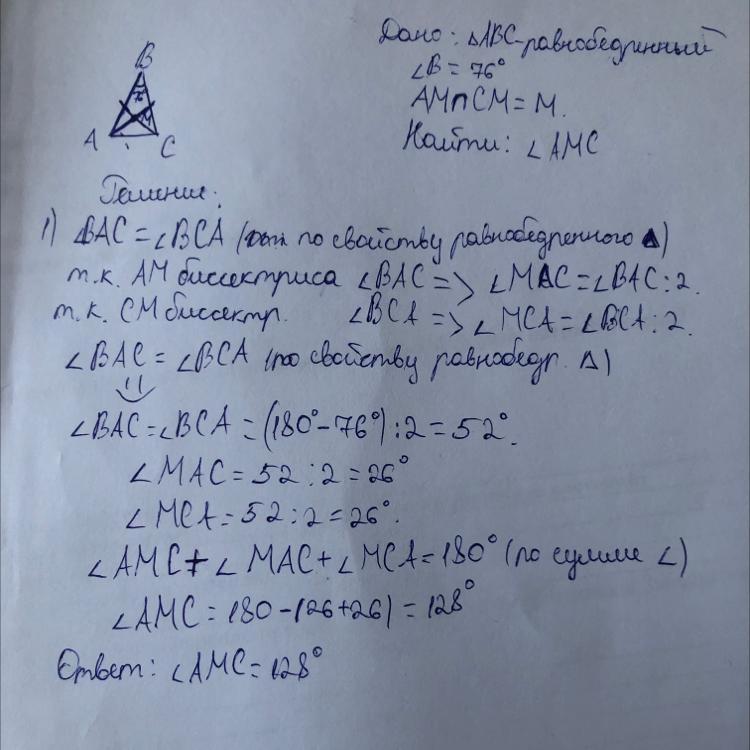 Дано: △ABC-равнобедренный
∠B = 76°
AM∩CM = M.
Найти: ∠AMC
B
76
M
A
C
Решение:
1) ∠BAC = ∠BCA ( по свойству равнобедренного △)
т.к. AM биссектриса ∠BAC => ∠MAC = ∠BAC : 2.
т.к. CM биссектр. ∠BCA => ∠MCA = ∠BCA : 2.
∠BAC = ∠BCA (по свойству равнобедр. △)
∠BAC = ∠BCA = (180° - 76°) : 2 = 52°.
∠MAC = 52 : 2 = 26°
∠MCA = 52 : 2 = 26°.
∠AMC + ∠MAC + ∠MCA = 180° (по сумме ∠)
∠AMC = 180 - (26 + 26) = 128°
Ответ: ∠AMC = 128°